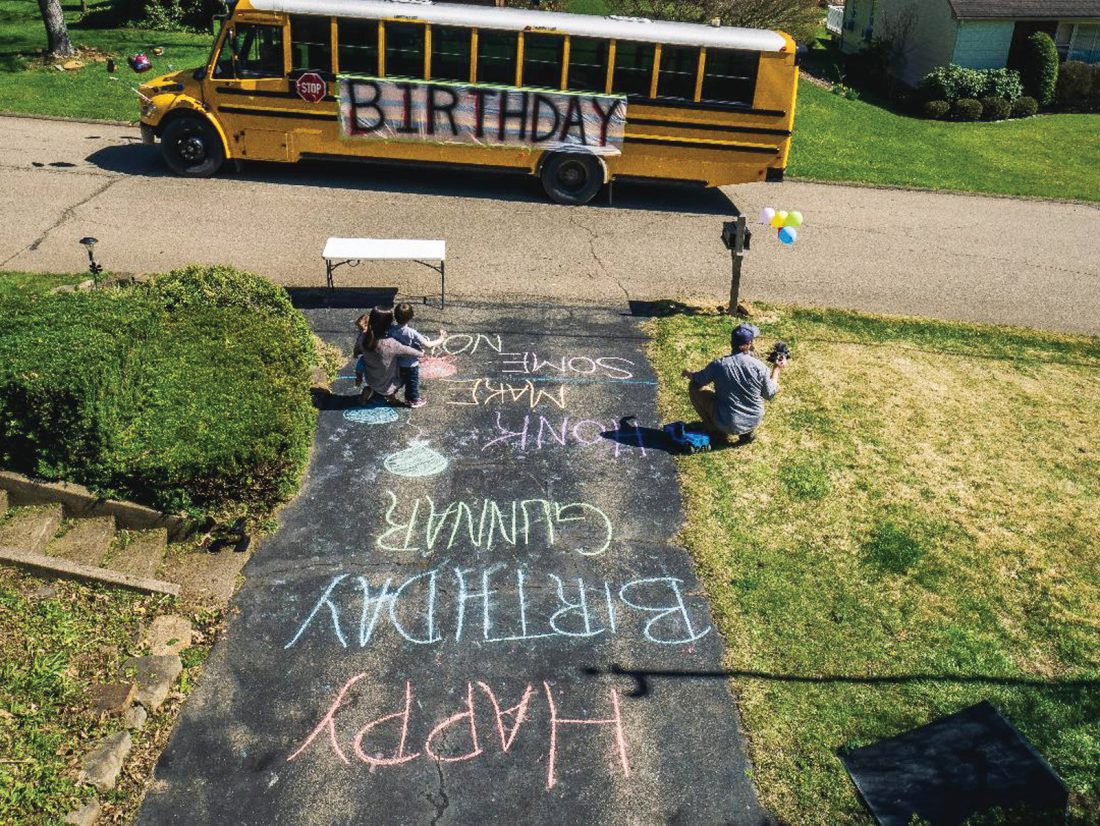 STOP
BIRTHDAY
HAPPY
BIRTHDAY
GUNNAR
HONK
MAKE
SOME